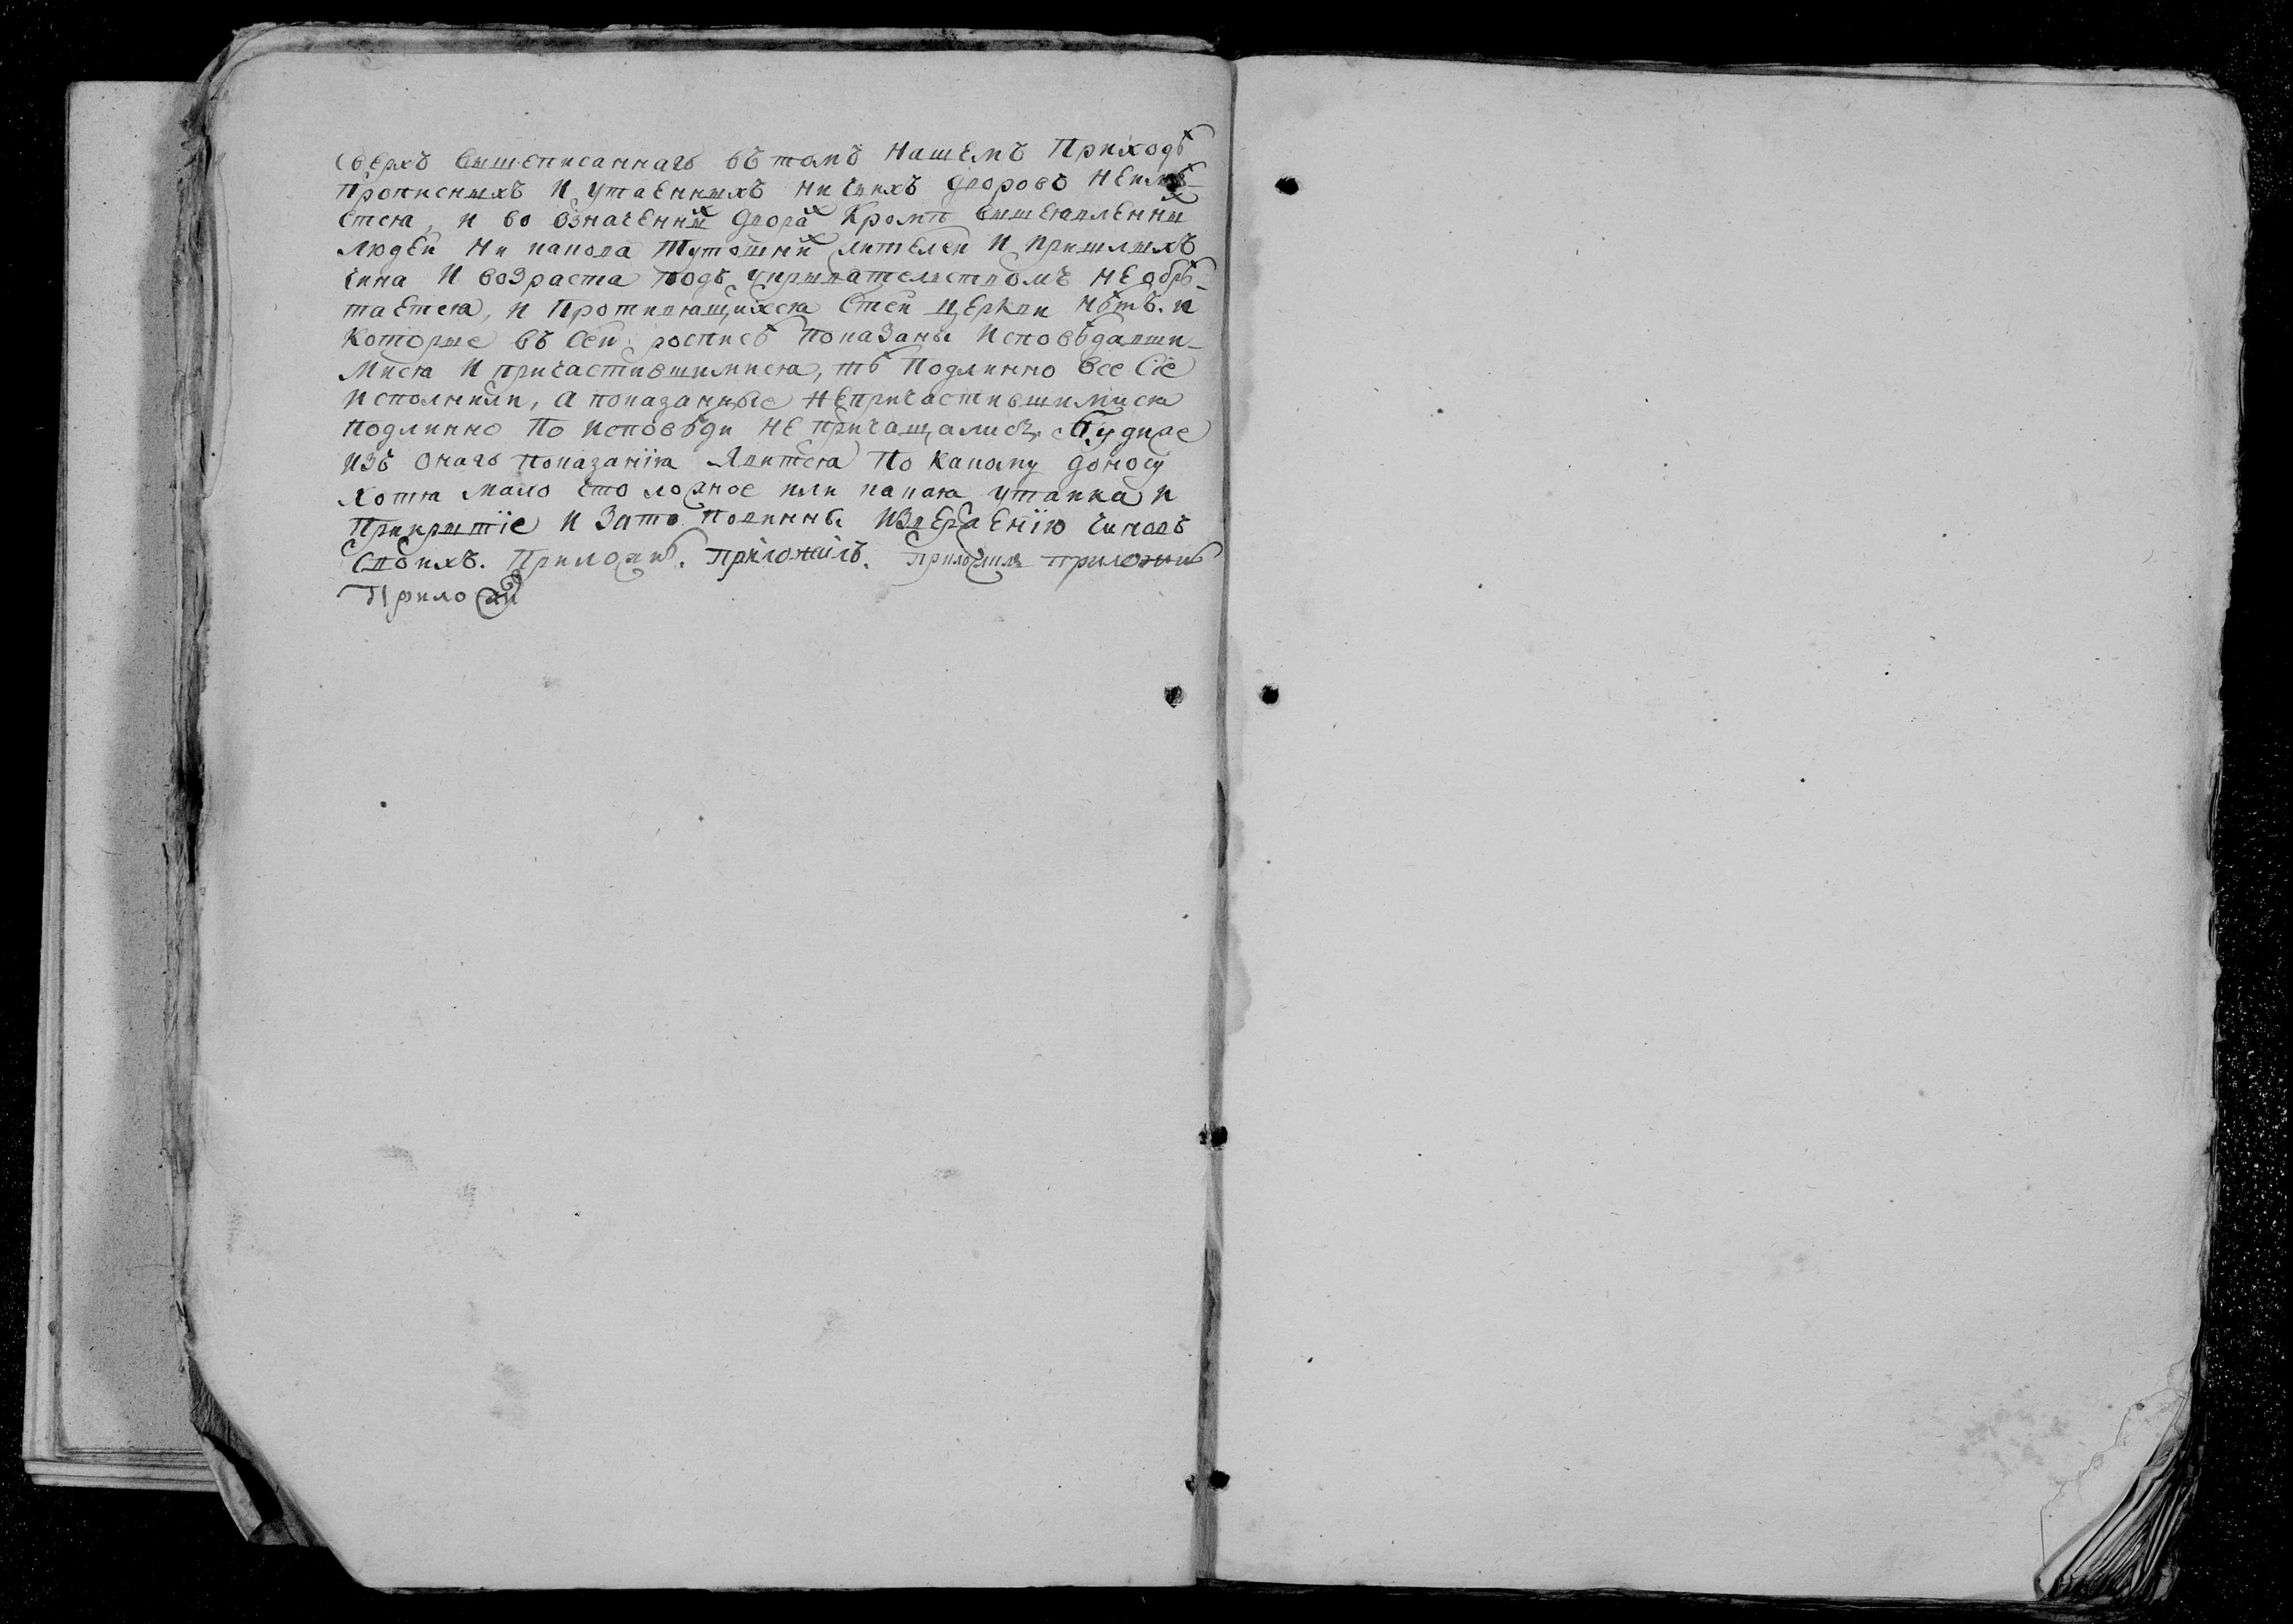 Сверхъ вышеписаннагѡ въ томъ нашемъ Приходѣ
прописныхъ и утаенныхъ ничьихъ дворовъ неимѣ-
ется, и во означенныхъ дворахъ Кромѣ вышеявленныхъ
людей ни какова тутошнихъ жителей и пришлыхъ
чина и возраста подъ укрывателствомъ необрѣ-
таетеся, и противящихся Стей церкви нѣтъ. и
которые въ сей росписѣ показаны исповѣдавши-
мися и причастившимися, тѣ подлинно все сïе
исполнили, а показанные непричастившимися
подлинно по исповѣди не причащались. Будиже
изъ онагѡ показанïя Явитеся по какому доносу
хотя мало что ложное или какая утайка и
прикрытïе и зато повинны извержению чиновъ
своихъ. Приложилъ. приложилъ. приложилъ приложилъ
Приложи